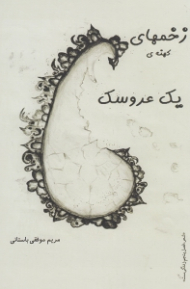 زخمهای
کهنه ی
یک عروسک
مریم موفقی باستانی